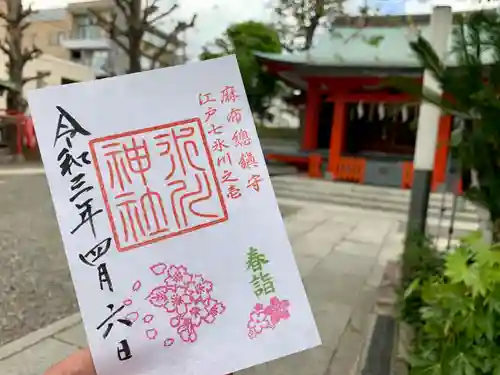 麻布總鎮守
江戸七氷川之壱
氷川
神社
令和三年四月六日
春詣